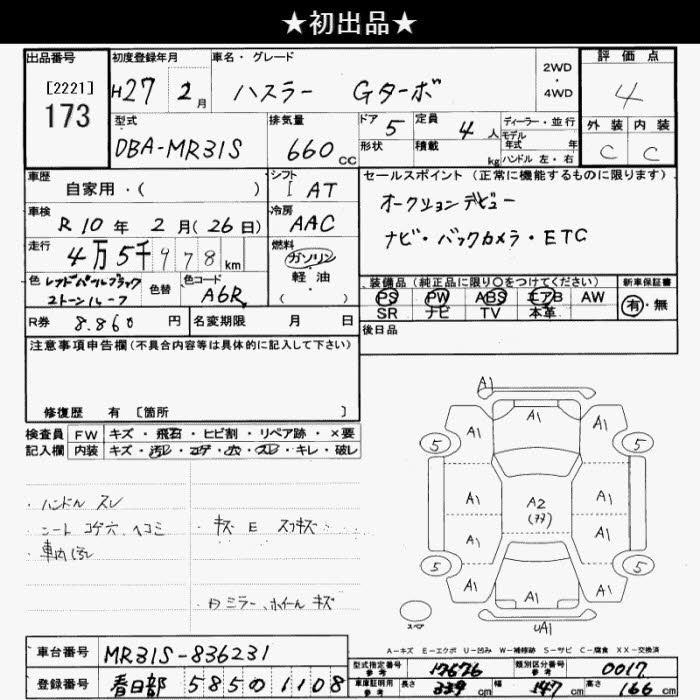 ★初出品★
出品番号 初度登録年月 車名・グレード 2WD・4WD 評価点
[2221] 173 H27 2月 ハスラー Gターボ 4
型式 排気量 ドア 5 定員 4人 ディーラー・並行 外装 内装
DBA-MR31S 660cc 形状 積載 kg モデル年式 年 ハンドル 左・右 C C
車歴 シフト セールスポイント (正常に機能するものに限ります)
自家用・( ) I AT オークションデビュー
車検 冷房
R10年 2月(26日) AAC ナビ・バックカメラ・ETC
走行 燃料
4万5千978km ガソリン 軽油 ( )
色 レッドパールブラック2トンルーフ 色替 色コード A6R
装備品(純正品に限り○をつけてください) 新車保証書
PS PW ABS エアB AW 有・無
SR ナビ TV 本革
R券 8.860円 名変期限 月 日 後日品
注意事項申告欄(不具合内容等は具体的に記入して下さい)
修復歴 有 [箇所 ]
検査員 FW キズ・飛石・ヒビ割・リペア跡・×要
記入欄 内装 キズ・汚レ・コゲ・穴・スレ・キレ・破レ
・ハンドル スレ
・シート コゲ穴 ヘコミ ・キズ E スリキズ
・車内汚レ
ミラー、ホイール キズ
A1
A1
5 A1 A1 5
A1 A2 A1
A1 A1
5 A1 A1 A1 5
スペア UA1
A-キズ E-エクボ U-凹み W-補修跡 S-サビ C-腐食 XX-交換済
車台番号 MR31S-836231
型式指定番号 参考 17676 類別区分番号 参考 0017
登録番号 春日部 585の1108
車庫証明用 参考 長さ 339cm 幅 147cm 高さ 166cm